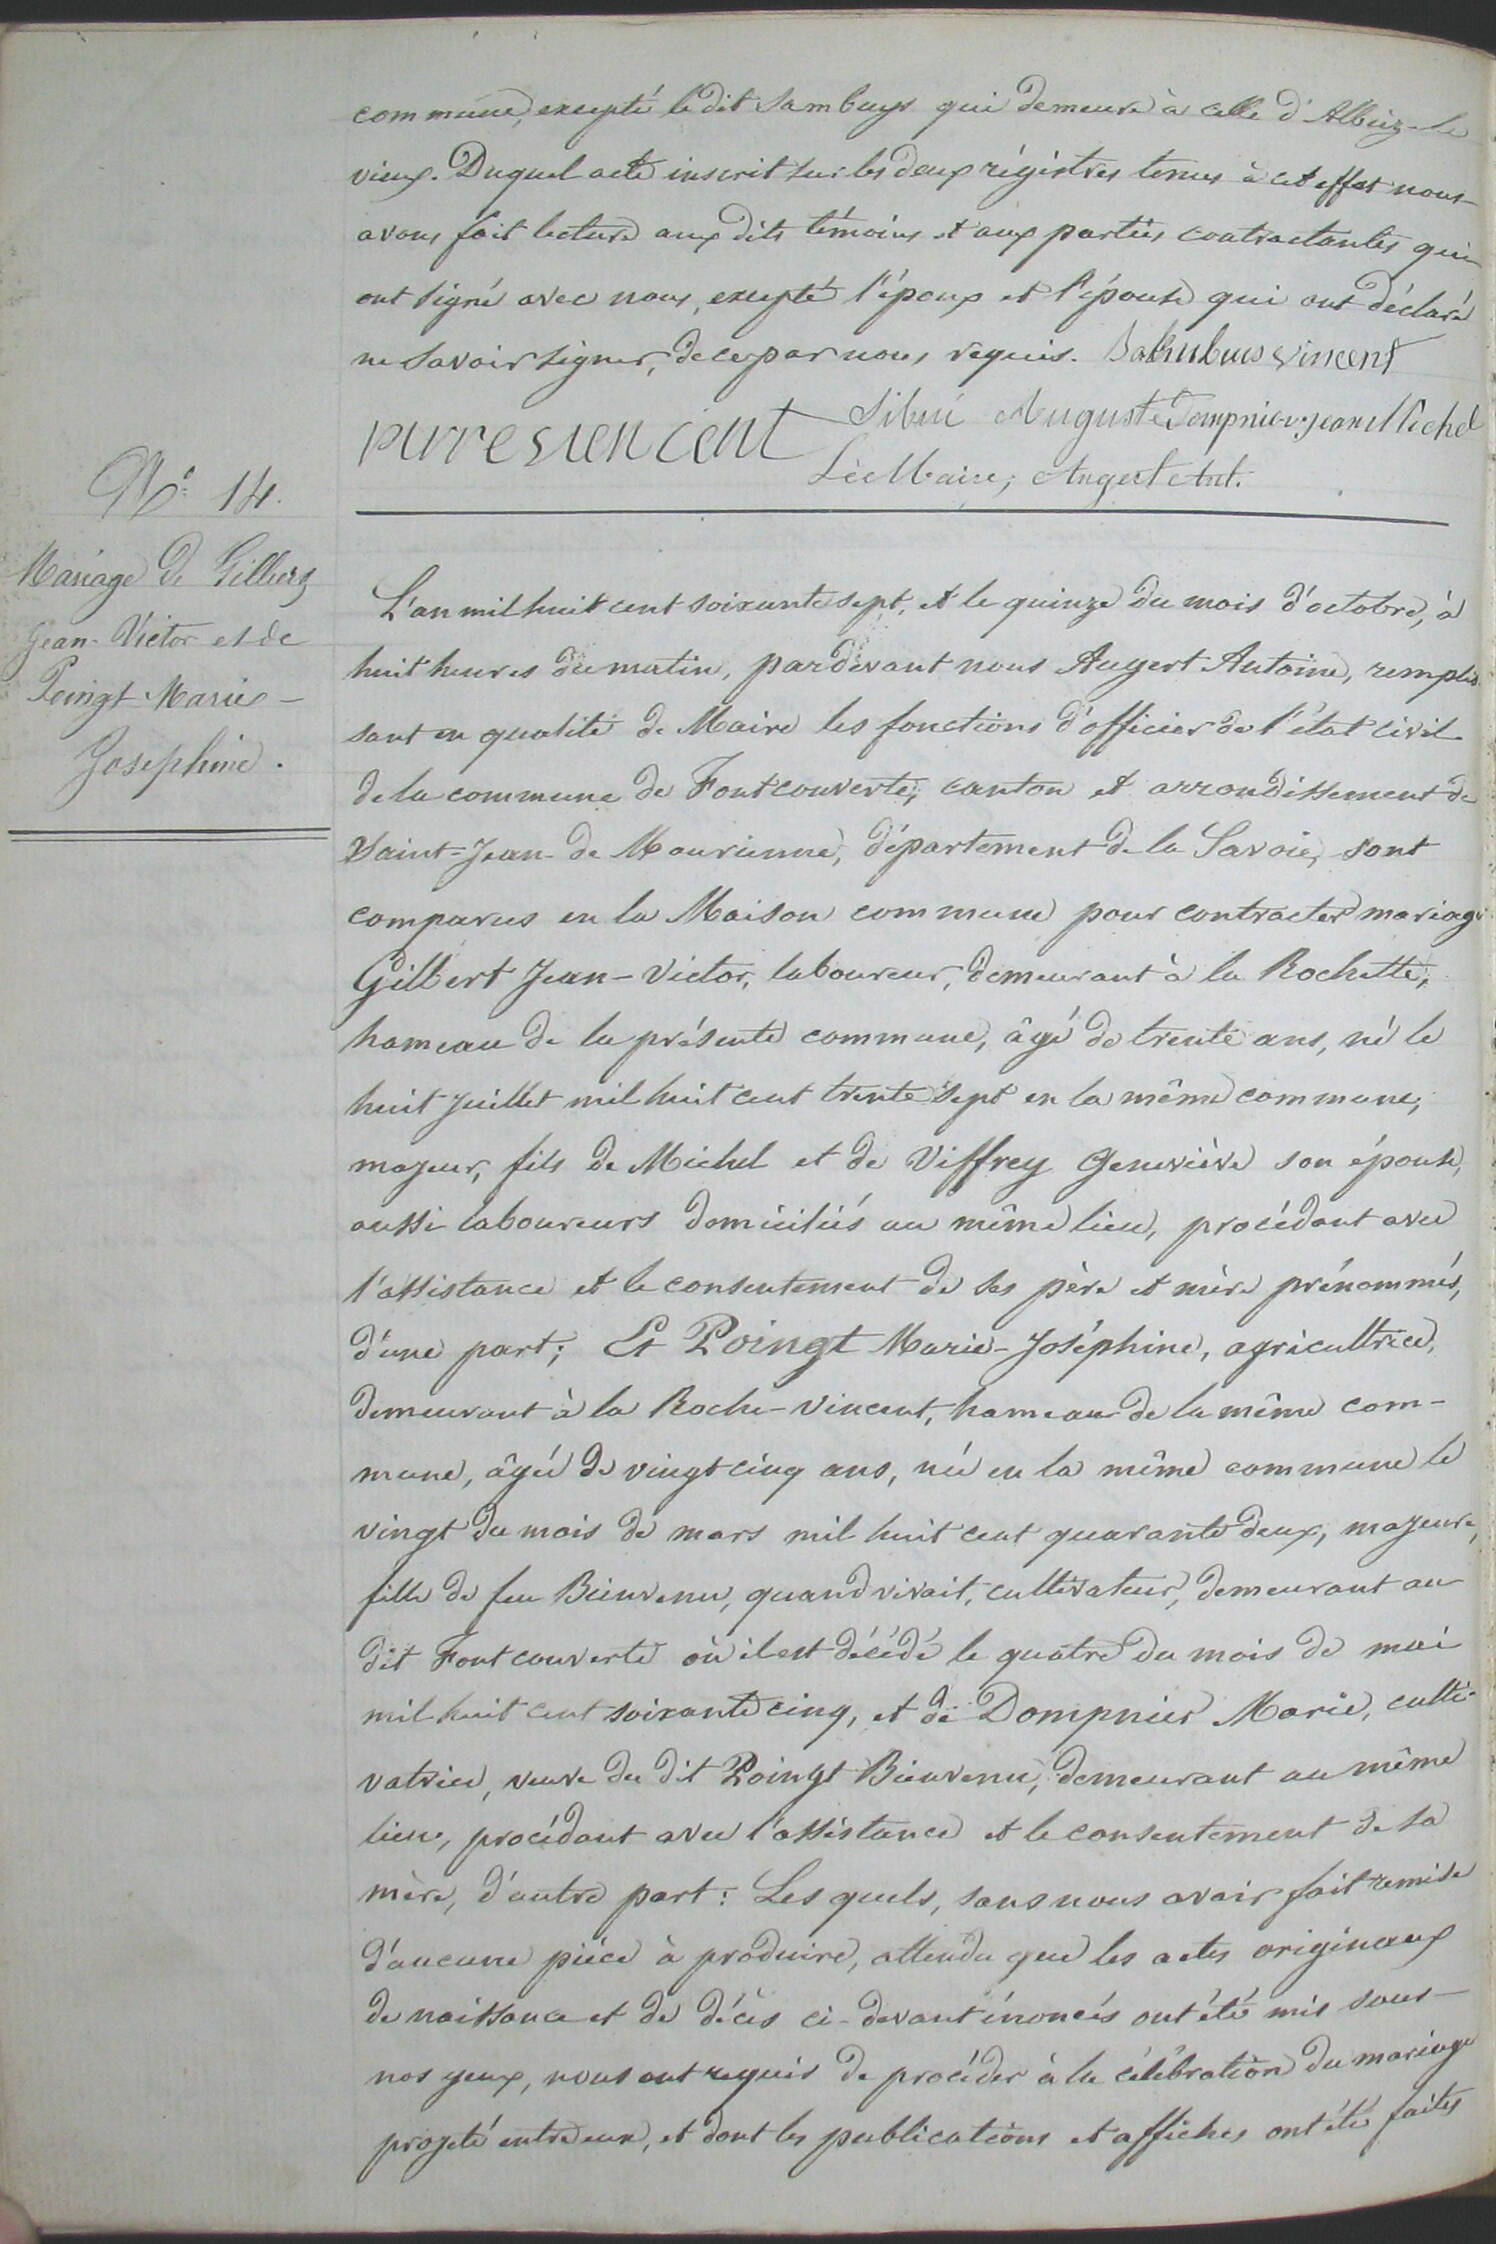 commune, excepté le dit Sambuys qui demeure à celle d'Albiez-le
vieux. Duquel acte inscrit sur les deux régistres tenus à cet effet nous
avons fait lecture aux dits témoins et aux parties contractantes qui
ont signé avec nous, excepté l'époux et l'épouse qui ont déclaré
ne savoir signer, de ce par nous requis. Vincent
Auguste Dompnier jean Michel
Le Maire, Augert Ant.
N° 14.
Mariage de Gilbert
Jean-Victor et de
Poingt Marie-
Joséphine.
L'an mil huit cent soixante sept, et le quinze du mois d'octobre, à
huit heures du matin, pardevant nous Augert Antoine, remplis
sant en qualité de Maire les fonctions d'officier de l'état civil
de la commune de Fontcouverte, canton et arrondissement de
Saint-Jean-de Maurienne, département de la Savoie, sont
comparus en la Maison commune pour contracter mariage
Gilbert Jean-Victor, laboureur, demeurant à la Rochette,
hameau de la présente commune, âgé de trente ans, né le
huit juillet mil huit cent trente sept en la même commune,
majeur, fils de Michel et de Viffrey Geneviève son épouse,
aussi laboureurs domiciliés au même lieu, procédant avec
l'assistance et le consentement de ses père et mère prénommés,
d'une part; Et Poingt Marie-Joséphine, agricultrice,
demeurant à la Roche-Vincent, hameau de la même com-
mune, âgée de vingt cinq ans, née en la même commune le
vingt du mois de mars mil huit cent quarante deux, majeure,
fille de feu Bienvenu, quand vivait, cultivateur, demeurant au
dit Fontcouverte où il est décédé le quatre du mois de mai
mil huit cent soixante cinq, et de Dompnier Marie, culti-
vatrice, veuve du dit Poingt Bienvenu, demeurant au même
lieu, procédant avec l'assistance et le consentement de sa
mère, d'autre part: Les quels, sans nous avoir fait remise
d'aucune pièce à produire, attendu que les actes originaux
de naissance et de décès ci-devant énoncés ont été mis sous
nos yeux, nous ont requis de procéder à la célébration du mariage
projeté entre eux, et dont les publications et affiches ont été faites